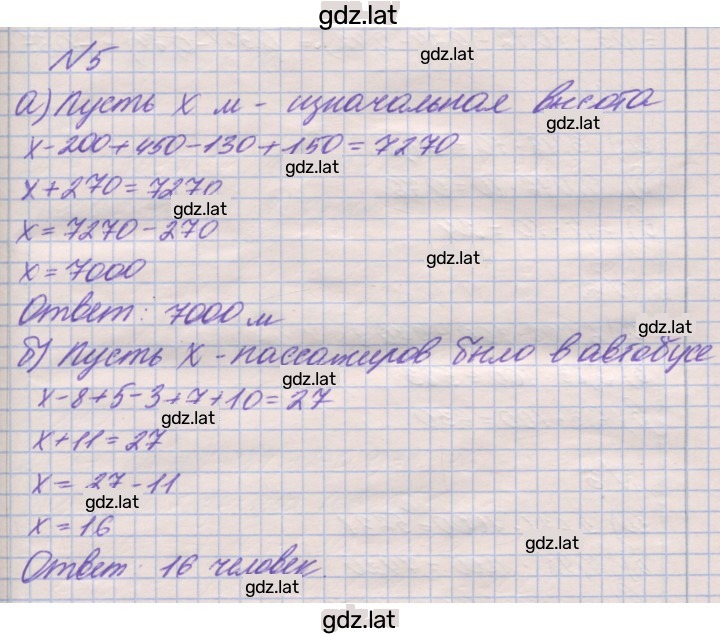 gdz.lat
№5
gdz.lat
а) Пусть x м - изначальная высота
gdz.lat
x-200+450-130+150=7270
gdz.lat
x+270=7270
gdz.lat
x=7270-270
gdz.lat
x=7000
Ответ: 7000 м
gdz.lat
б) Пусть x - пассажиров было в автобусе
gdz.lat
x-8+5-3+7+10=27
gdz.lat
x+11=27
x=27-11
gdz.lat
x=16
gdz.lat
Ответ: 16 человек.
gdz.lat
gdz.lat